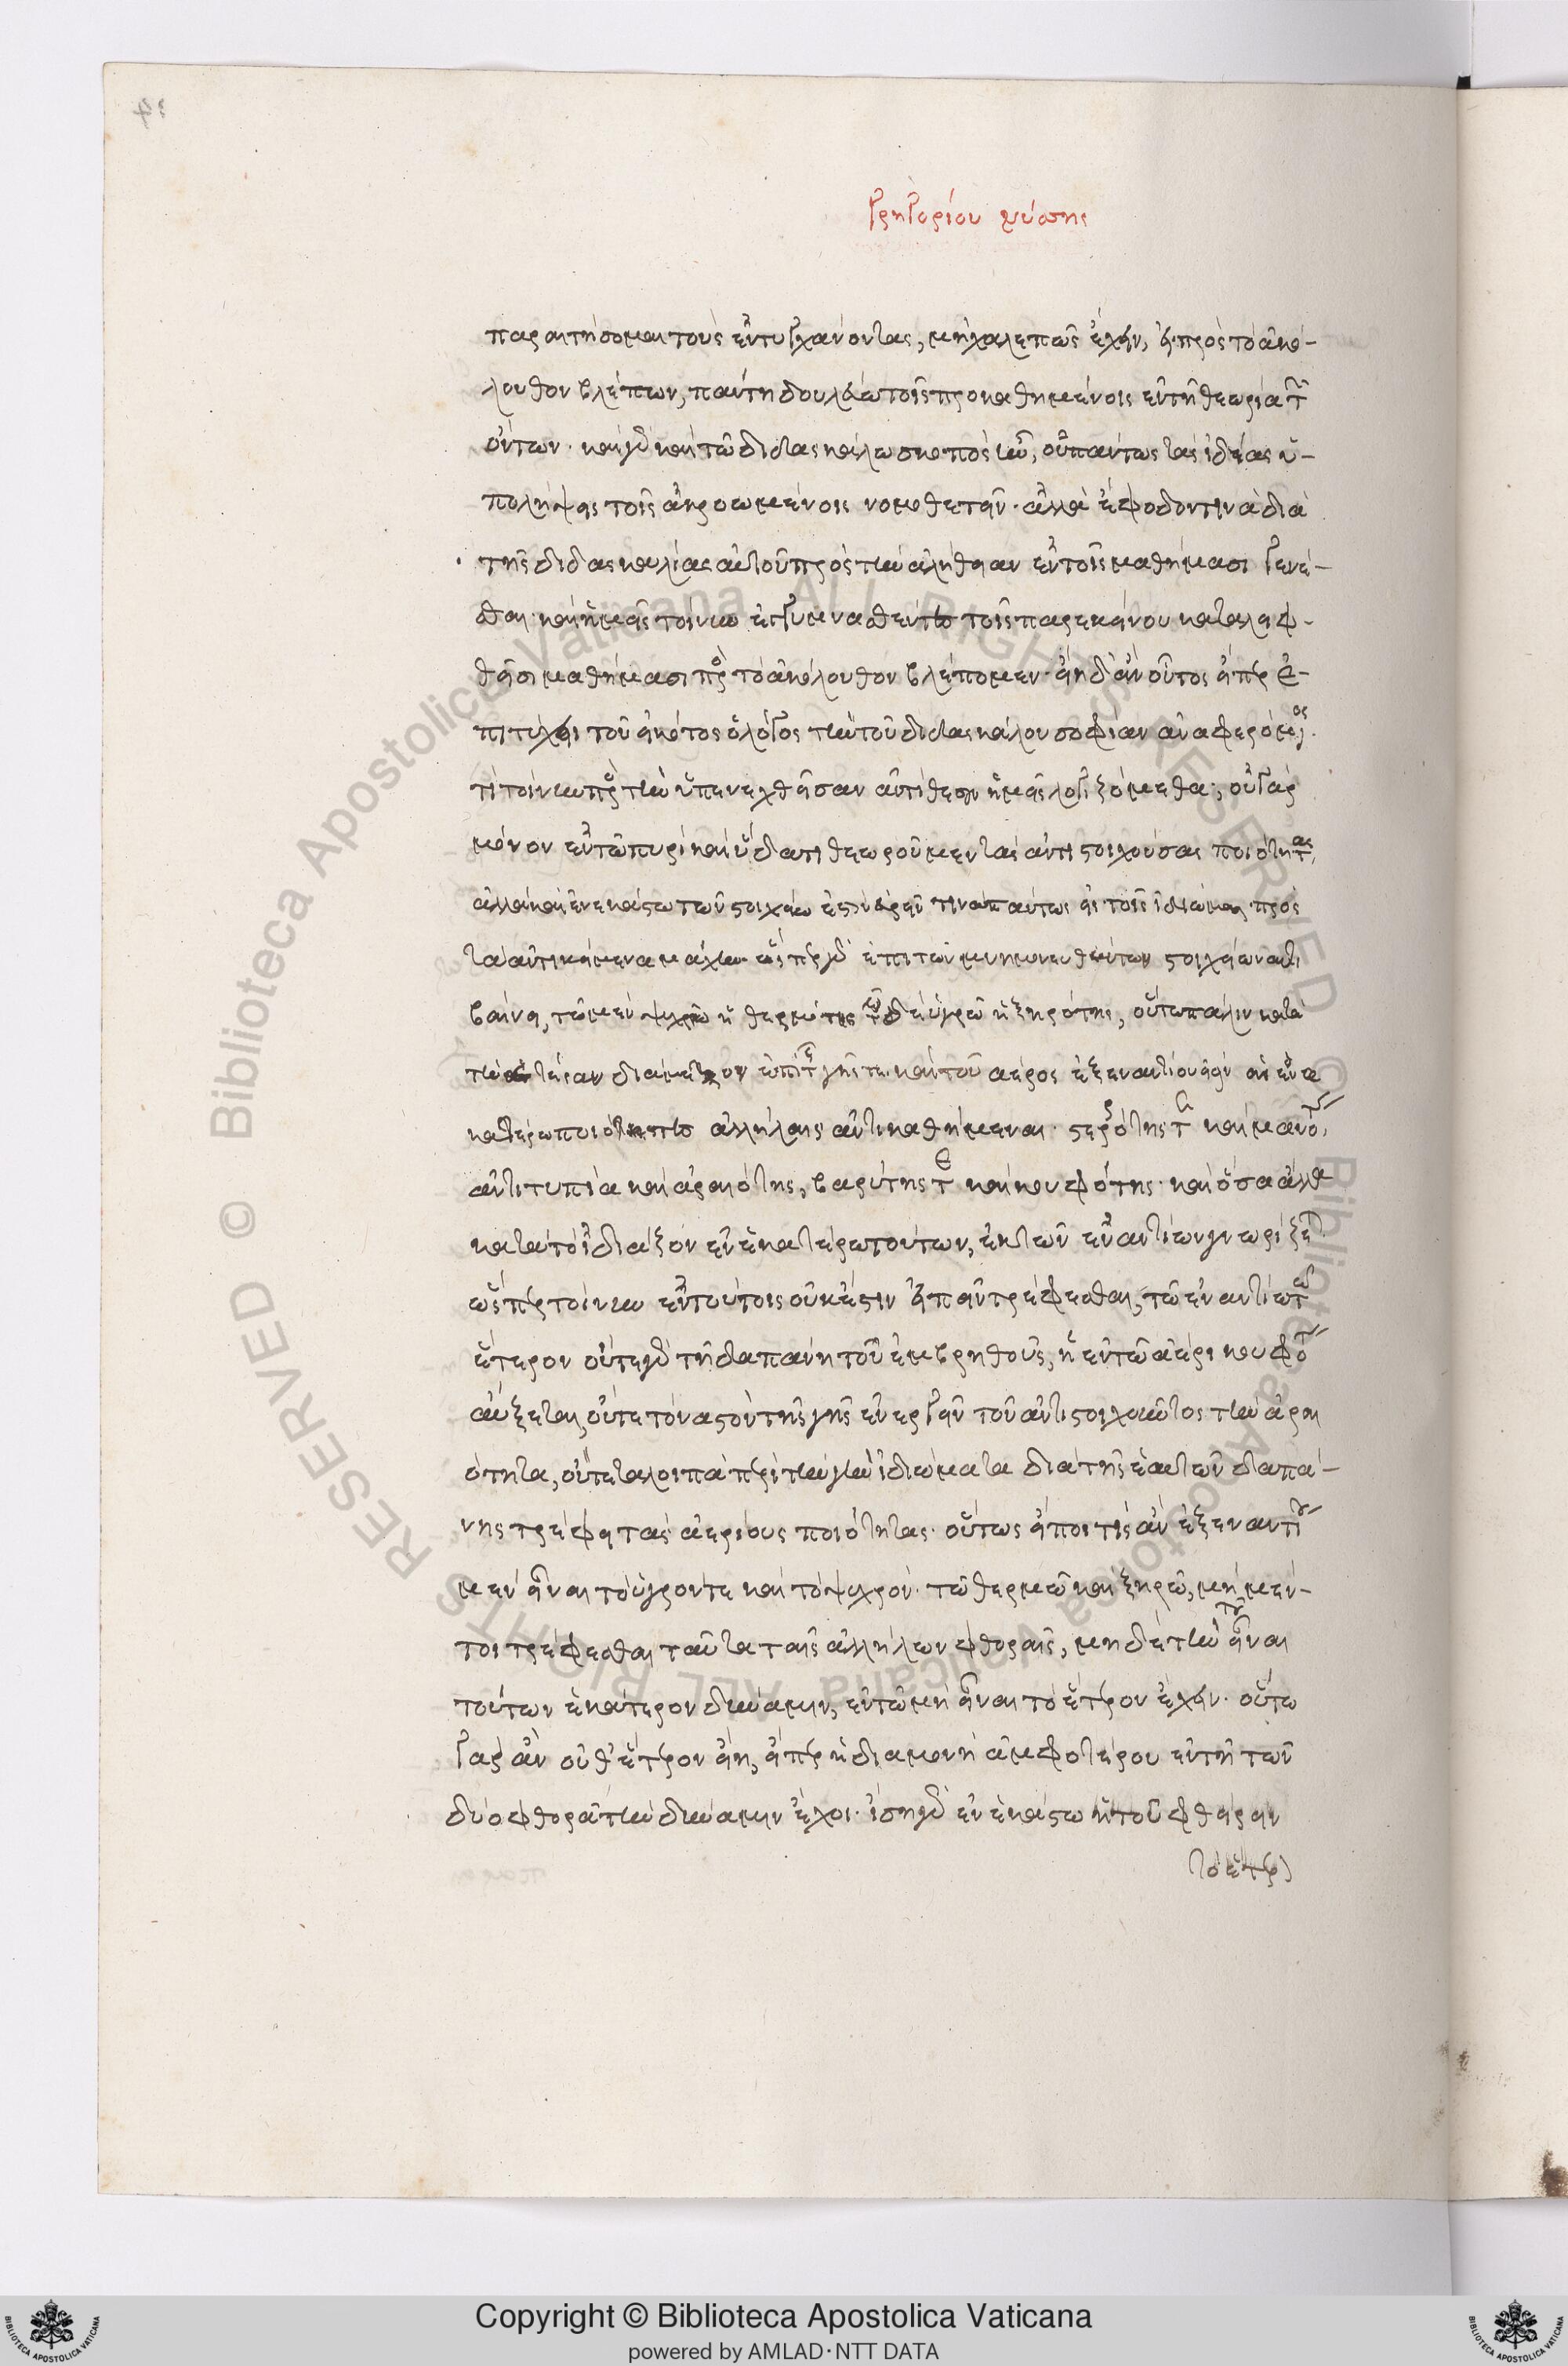 Γρηγορίου νύσης
παραιτήσομαι τοὺς ἐντυγχάνοντας, μὴ χαλεπῶς ἔχειν, εἰ πρὸς τὸ ἀκό-
λουθον βλέπων, πάντη δουλεύω τοῖς προκαθημένοις ἐν τῇ θεωρίᾳ τῶν
ὄντων. καὶ γὰρ καὶ τῶ διδασκάλω σκοπὸς ἦν, οὐ πάντως τὰς ἰδίας ὑ-
πολήψεις τοῖς ἀκροωμένοις νομοθετεῖν. ἀλλὰ ἔφοδον τινὰ διὰ
τῆς διδασκαλίας αὐτοῦ πρὸς τὴν ἀλήθειαν ἐν τοῖς μαθήμασι γενέ-
σθαι. καὶ ἡμεῖς τοίνυν ἐγγυμνασθέντες τοῖς παρ' ἐκείνου καταληφ-
θεῖσι μαθήμασι πρὸς τὸ ἀκόλουθον βλέπομεν. εἴη δ' ἂν οὗτος εἴπερ ἐ-
πιτύχοι τοῦ εἰκότος ὁ λόγος εἰς τὴν τοῦ διδασκάλου σοφίαν ἀναφερόμενος.
τί τοίνυν πρὸς τὴν ὑπενεχθεῖσαν ἀντίθεσιν ἡμεῖς λογιζόμεθα; οὐ γὰρ
μόνον ἐν τῶ πυρὶ καὶ ὕδατι θεωροῦμεν τὰς ἀντιστοιχούσας ποιότητας,
ἀλλὰ καὶ ἐν ἑκάστω τῶν στοιχείων ἐστὶν εὑρεῖν τινα πάντως ἐν τοῖς ἰδιώμασι πρὸς
τὰ ἀντικείμενα μάχην. ὥσπερ γὰρ ἐπὶ τῶν μνημονευθέντων στοιχείων ἀντι
βαίνει, τῶ μὲν ψυχρῶ ἡ θερμότης τῶ δὲ ὑγρῶ ἡ ξηρότης, οὕτω πάλιν κατὰ
τὴν ἑτέραν διάμετρον ἐπὶ τῆς γῆς τε καὶ τοῦ ἀέρος ἐξεναντίου εἰσὶν αἱ ἐν ἑ
κατέρω ποιότητες ἀλλήλαις ἀντικαθήμεναι. στερρότης τε καὶ μανότης,
ἀντιτυπία καὶ ἀραιότης, βαρύτης τε καὶ κουφότης. καὶ ὅσα ἄλλα
κατὰ τὸ ἰδιάζον ἐν ἑκατέρω τούτων, ἐκ τῶν ἐναντίων γνωρίζεται
ὥσπερ τοίνυν ἐν τούτοις οὐκ ἔστιν εἰπεῖν τρέφεσθαι, τῶ ἐναντίω τῶ
ἕτερον οὔτε γὰρ τῇ δαπάνη τοῦ ἐμβριθοῦς, ἡ ἐν τῶ ἀέρι κουφότης
αὔξεται, οὔτε τὸ ναστὸν τῆς γῆς ἐνεργεῖν τοῦ ἀντιστοιχοῦντος τὴν ἀραι
ότητα, οὔτε τὰ λοιπὰ περὶ τὴν γῆν ἰδιώματα διὰ τῆς ἑαυτῶν δαπά-
νης τρέφει τὰς ἀερίους ποιότητας. οὕτως εἴποι τις ἂν ἐξεναντίου
μὲν εἶναι τὸ ὑγρόν τε καὶ τὸ ψυχρὸν. τῶ θερμῶ καὶ ξηρῶ, μὴ μέν-
τοι τρέφεσθαι ταῦτα ταῖς ἀλλήλων φθοραῖς, μηδὲ τὴν τοῦ εἶναι
τούτων ἑκάτερον δύναμιν, ἐν τῶ μὴ εἶναι τὸ ἕτερον ἔχειν. οὕτω
γὰρ ἂν οὐθέτερον εἴη, εἴπερ ἡ διαμονὴ ἀμφοτέρου ἐν τῇ τῶν
δύο φθορᾷ τὴν δύναμιν ἔχοι. ἴση γὰρ ἐν ἑκάστω ἡ τοῦ φθείρειν
τὸ ἕτερ